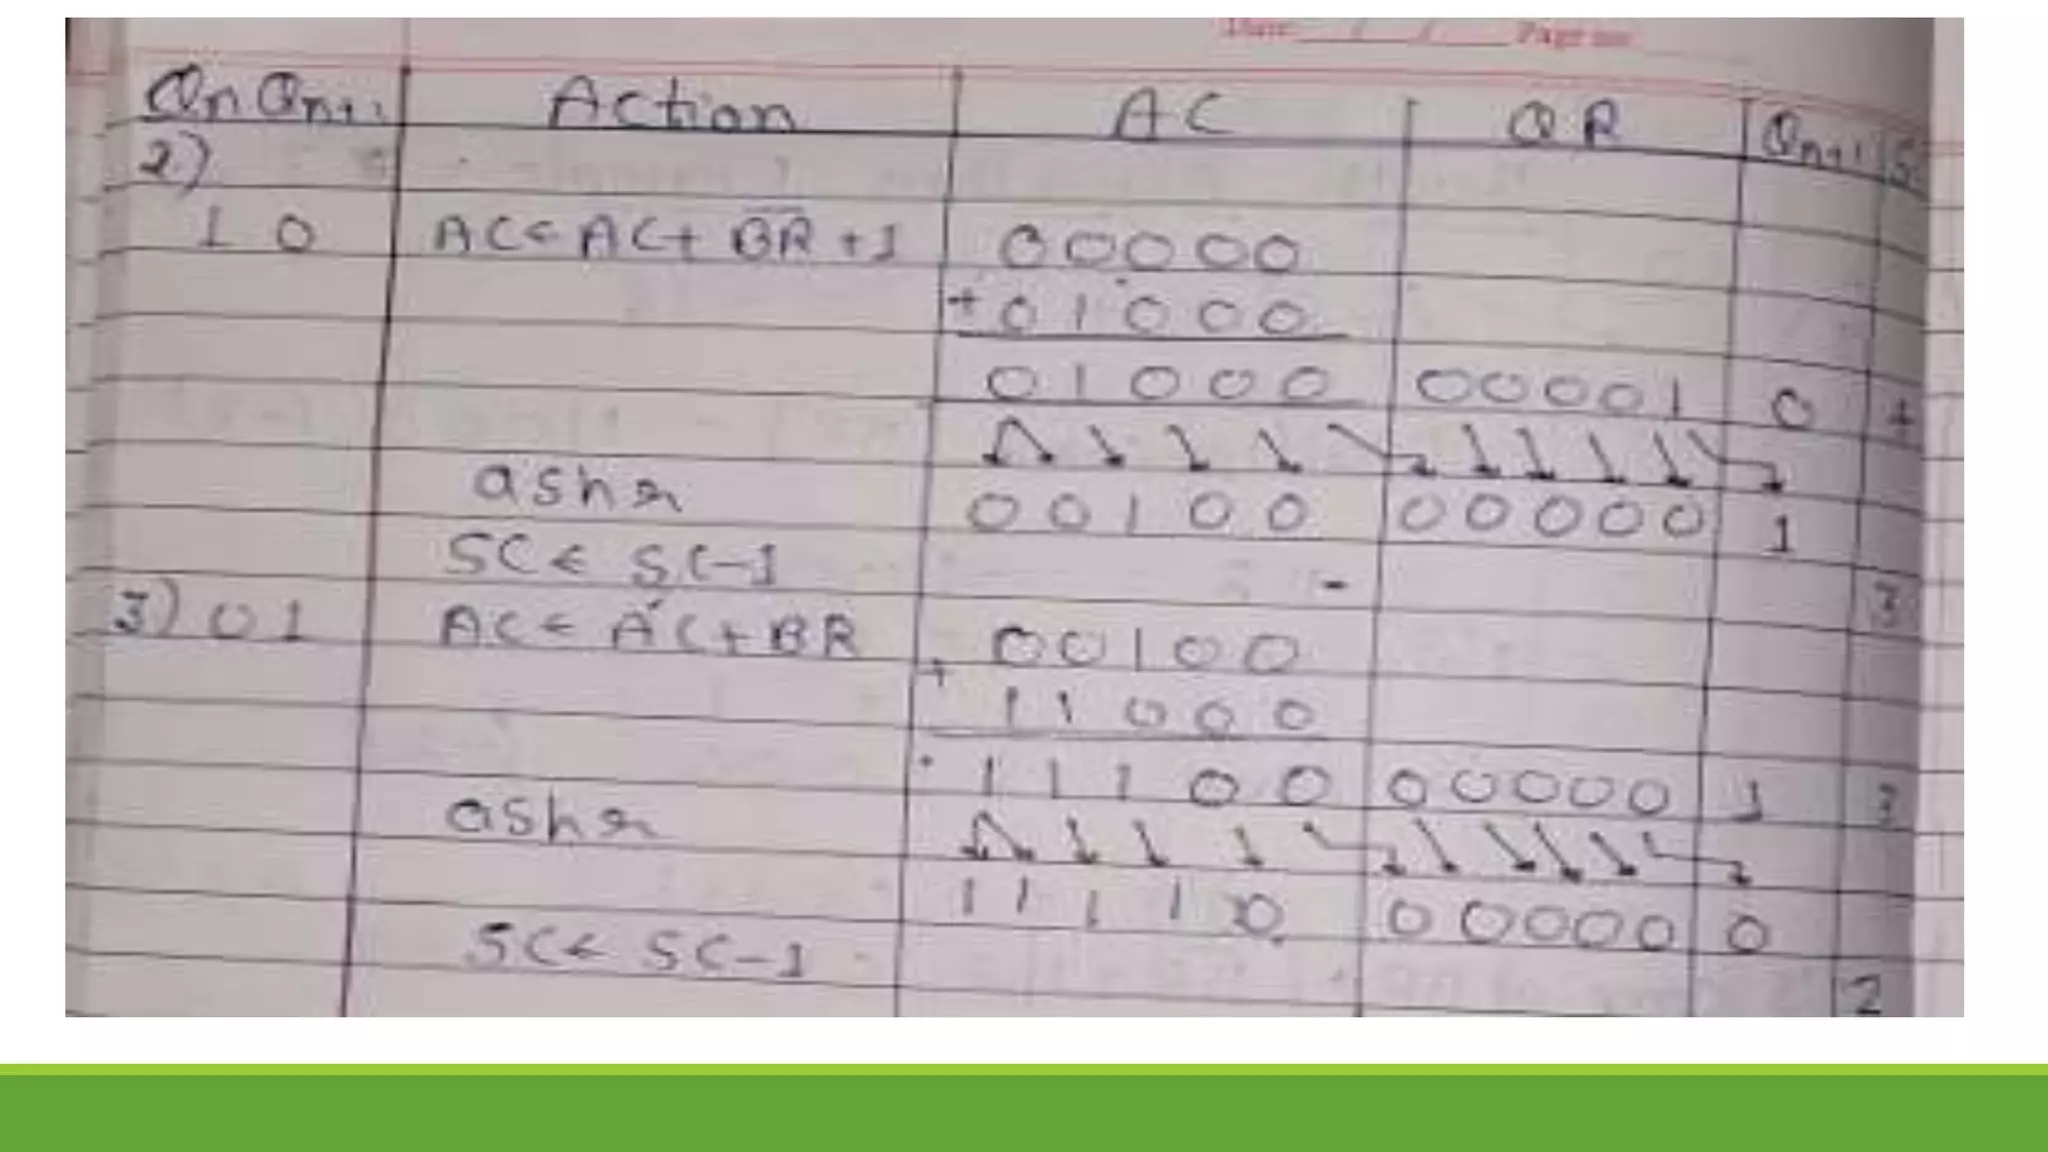 Date / / Page no:
Qn Qn+1 Action AC QR Qn+1 SC
2)
1 0 AC← AC+ B̅R̅ +1 00000
+01000
01000 00001 0 4
ashr 00100 00000 1
SC← SC-1 3
3) 01 AC← AC+BR 00100
+
11000
11100 00000 1 3
ashr
11110 00000 0
SC← SC-1
2